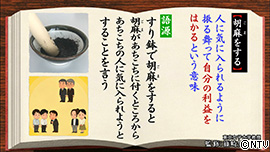 「胡麻をする」
人に気に入られるように
振る舞って自分の利益を
はかるという意味
語源
すり鉢で胡麻をすると
胡麻があちこちに付くところから
あちこちの人に気に入られようと
することを言う
©NTV